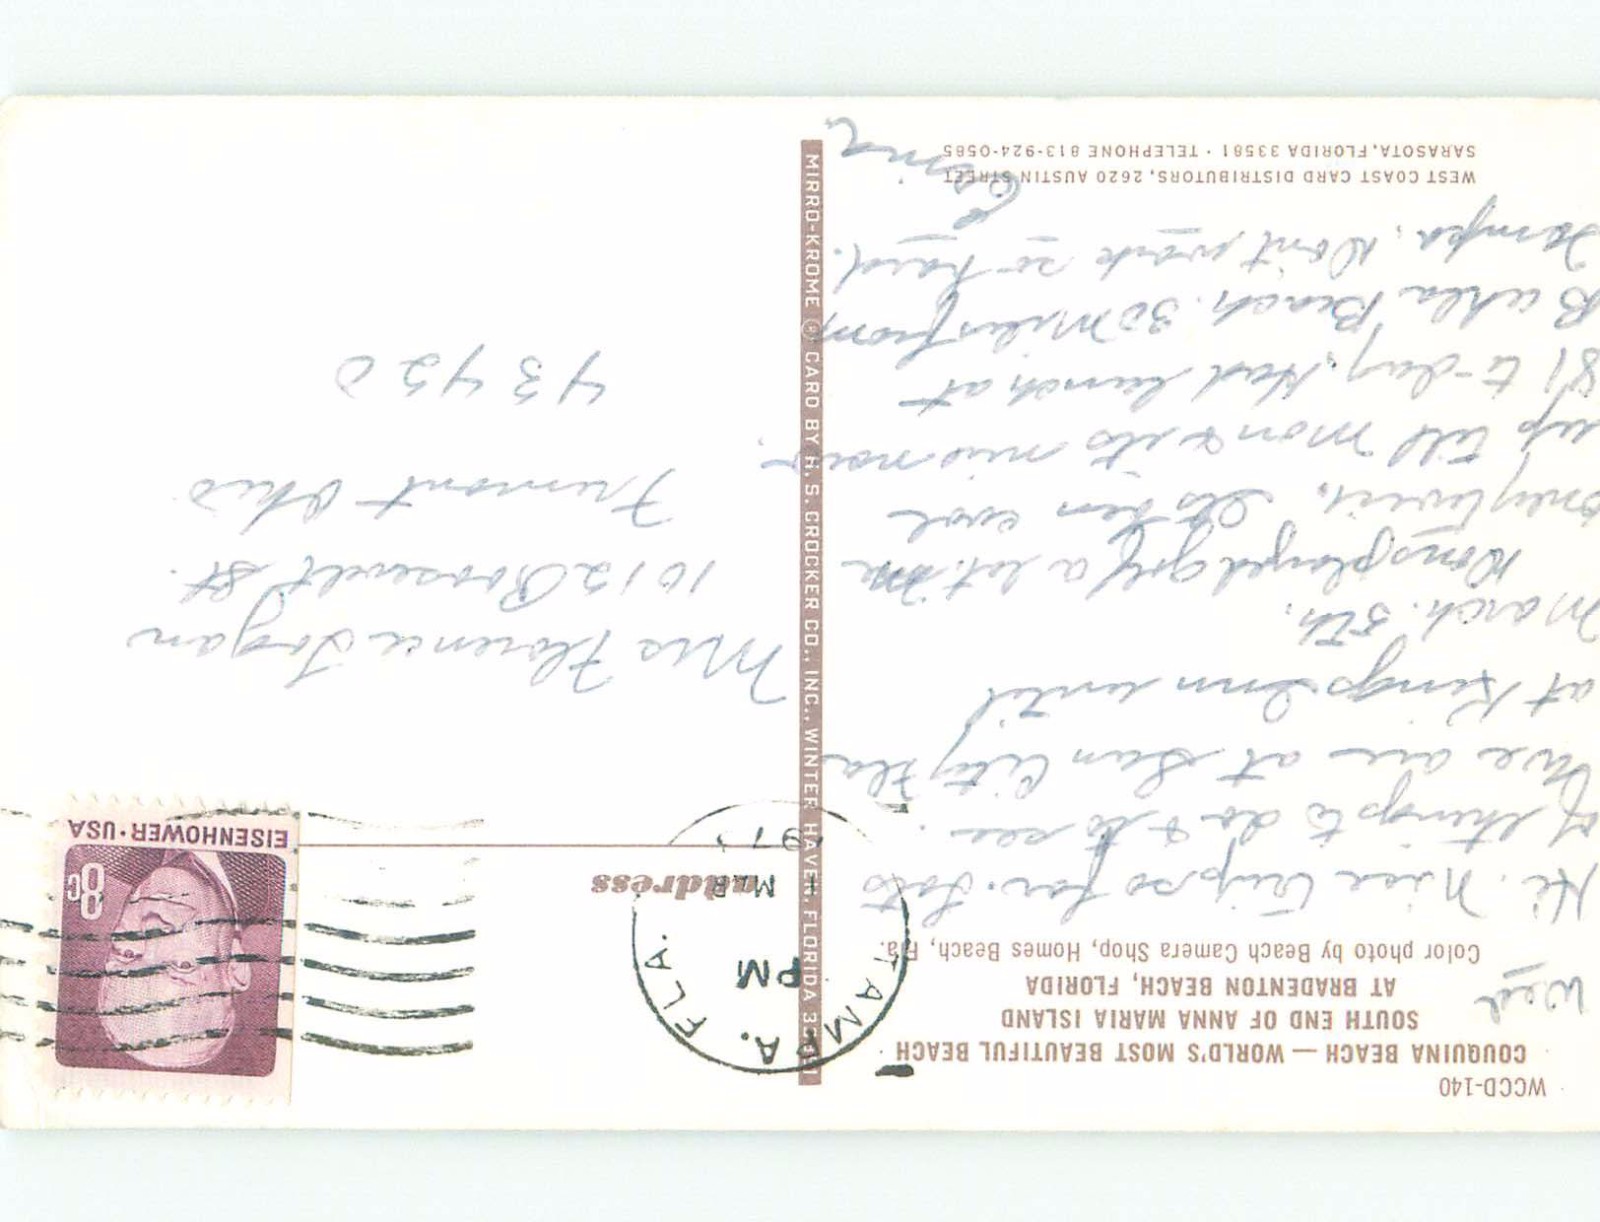 WCCD-140
COUQUINA BEACH — WORLD'S MOST BEAUTIFUL BEACH
SOUTH END OF ANNA MARIA ISLAND
AT BRADENTON BEACH, FLORIDA
Color photo by Beach Camera Shop, Homes Beach, Fla.
Wed
Hi. Nice trip so far. Lots
of things to do & to see.
We are at Sun City Fla
at Kings Inn until
March. 5th.
played golf a lot. Im
only twice. Its been cool
up till Mon & its nice now.
81 to-day. Had lunch at
Beach. 30 Miles from
Tampa. Dont work so hard.
WEST COAST CARD DISTRIBUTORS, 2620 AUSTIN STREET
SARASOTA, FLORIDA 33581 · TELEPHONE 813-924-0585
MIRRO-KROME ® CARD BY H. S. CROCKER CO., INC., WINTER HAVEN, FLORIDA
TAMPA, FLA.
PM
MAR
address
8c
EISENHOWER·USA
Mrs Florence
1012 Roosevelt St.
Fremont Ohio
43420